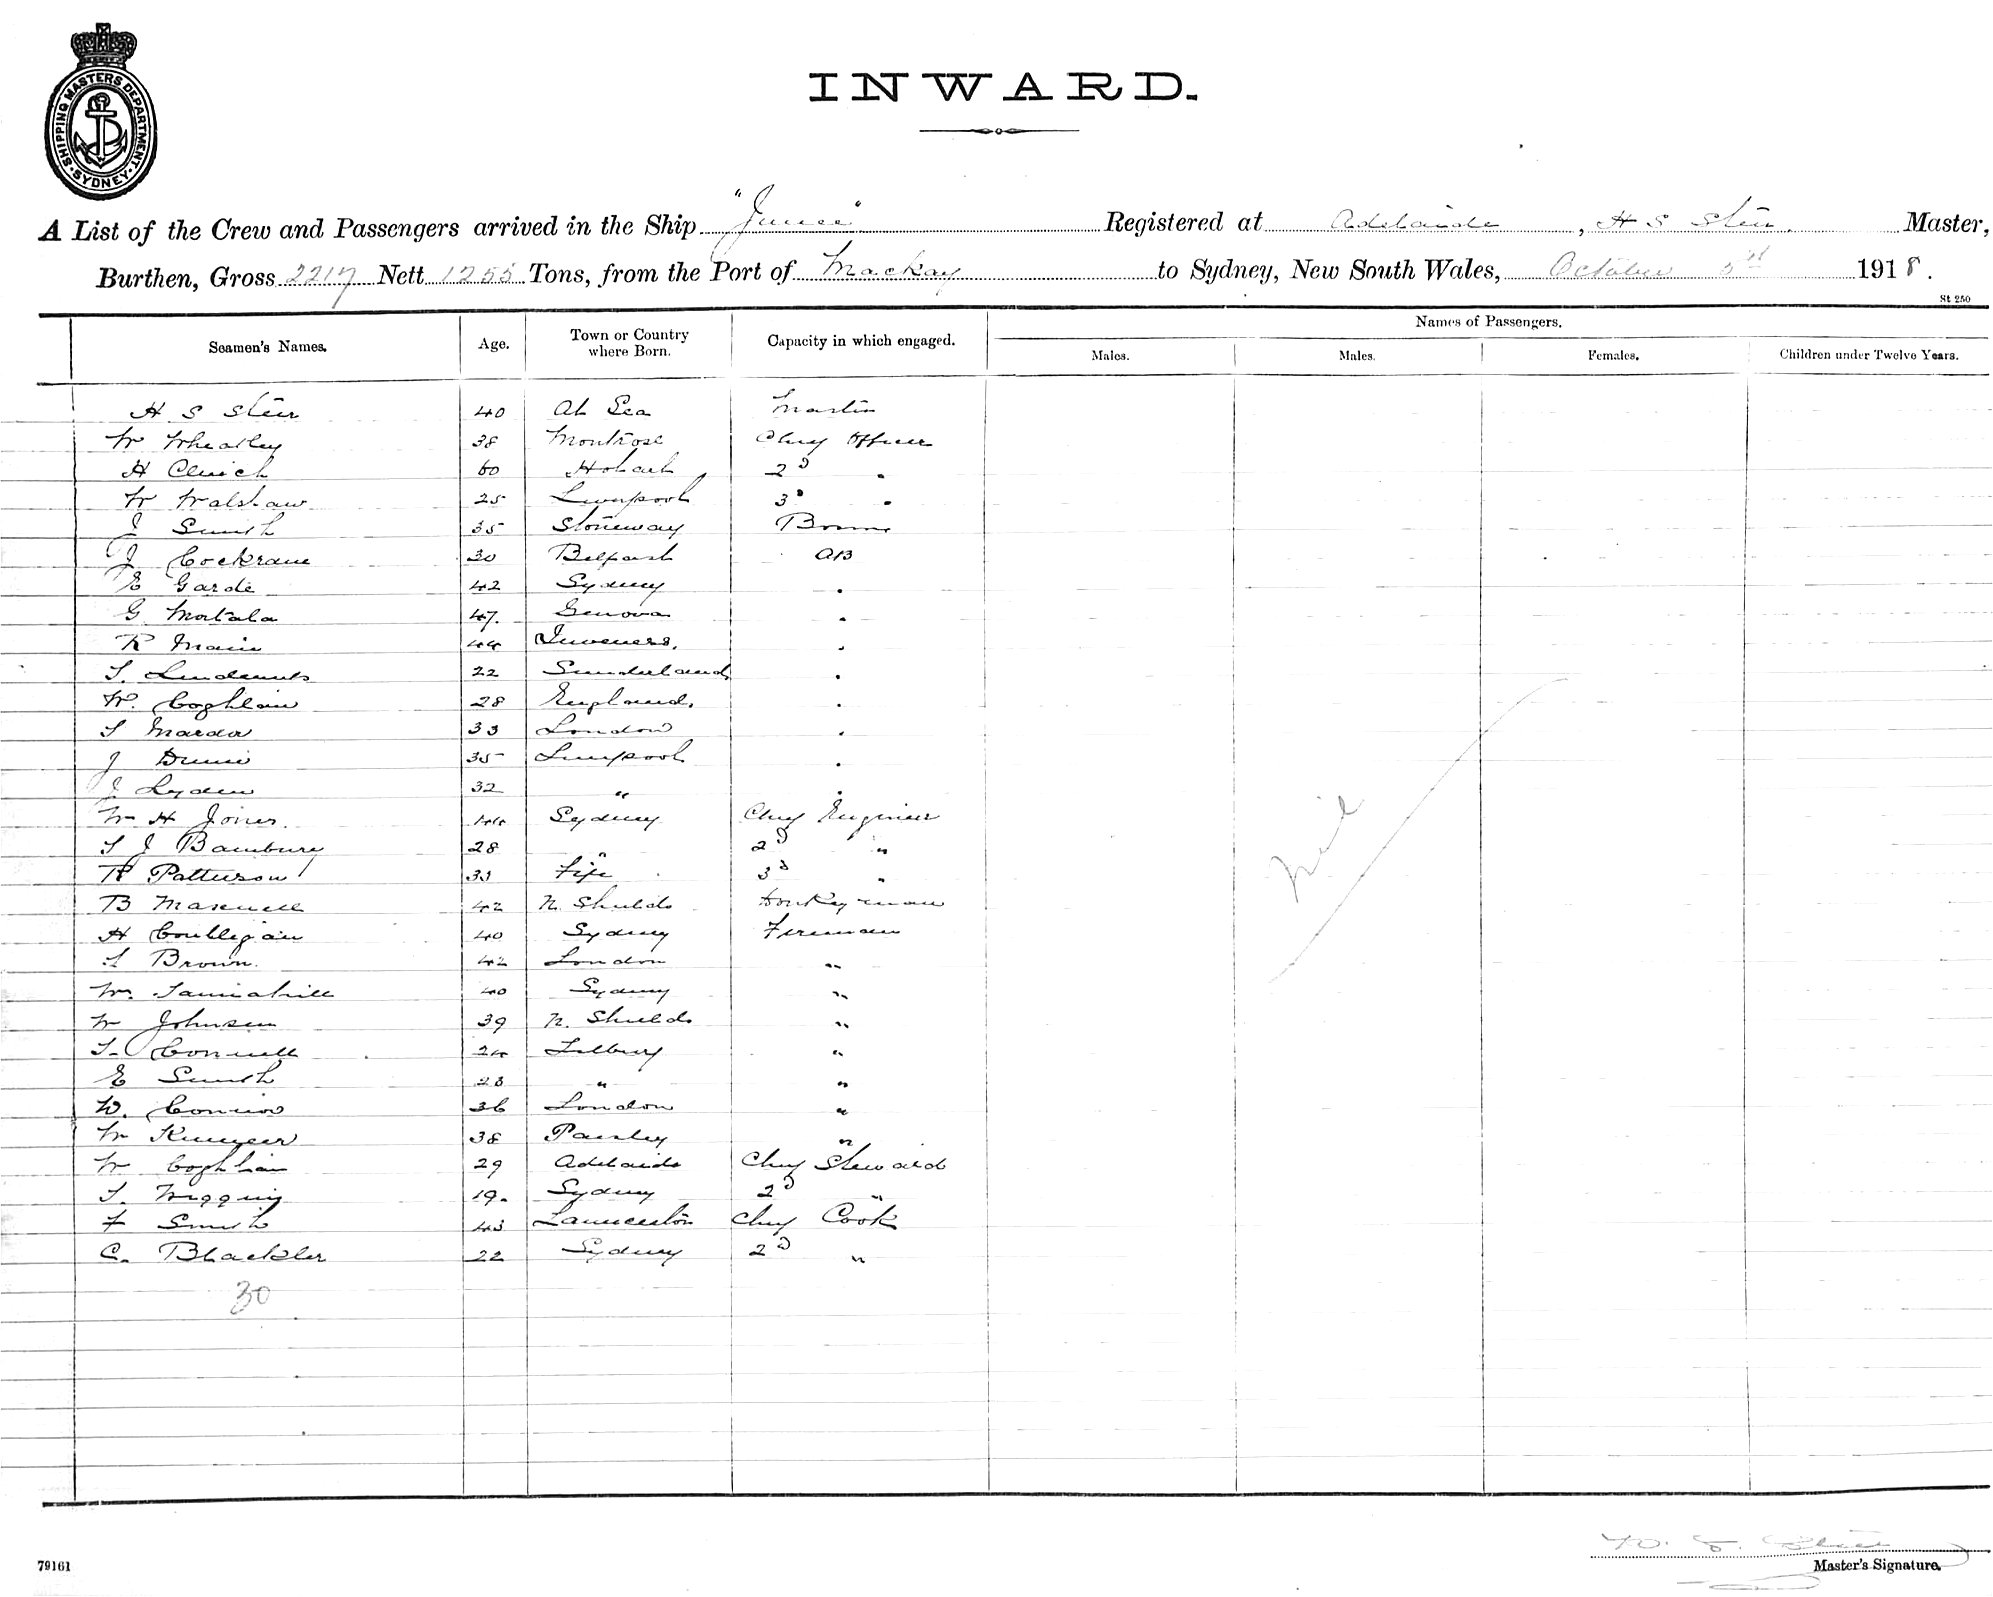 SHIPPING MASTERS DEPARTMENT. SYDNEY.
INWARD.
A List of the Crew and Passengers arrived in the Ship "Junee" Registered at Adelaide, H S Stein. Master,
Burthen, Gross 2217 Nett 1255 Tons, from the Port of Mackay to Sydney, New South Wales, October 1918.
St 250
Seamen's Names. Age. Town or Country where Born. Capacity in which engaged. Names of Passengers.
Males. Males. Females. Children under Twelve Years.
H S Stein 40 At Sea Master
W Wheatley 38 Montrose Chief Officer
H 60 Hobart 2D "
W Walshaw 25 Liverpool 3D "
J Smith 35 Bosun
J Cockrane 30 Belfast AB
E Garde 42 Sydney "
G Mortala 47. Genova "
R Main 44 Inverness. "
22 Sunderland "
W. Coghlan 28 England. "
33 London "
J 35 Liverpool "
J Lyden 32 " "
W H Jones. 44 Sydney Chief Engineer
S J Bambury 28 " 2D "
R Patterson 33 Fife 3D "
B Maxwell 42 N. Shields Donkeyman
H 40 Sydney Fireman
Brown. 42 London "
W. Tannahill 40 Sydney "
W Johnson 39 N. Shields "
Connell 24 Tilbury "
E Smith 28 " "
W. Connor 36 London "
W 38 Paisley "
W Coghlan 29 Adelaide Chief Steward
19. Sydney 2D "
F Smith 43 Launceston Chief Cook
C. Blackler 22 Sydney 2D "
30
Nil
79161
Master's Signature.